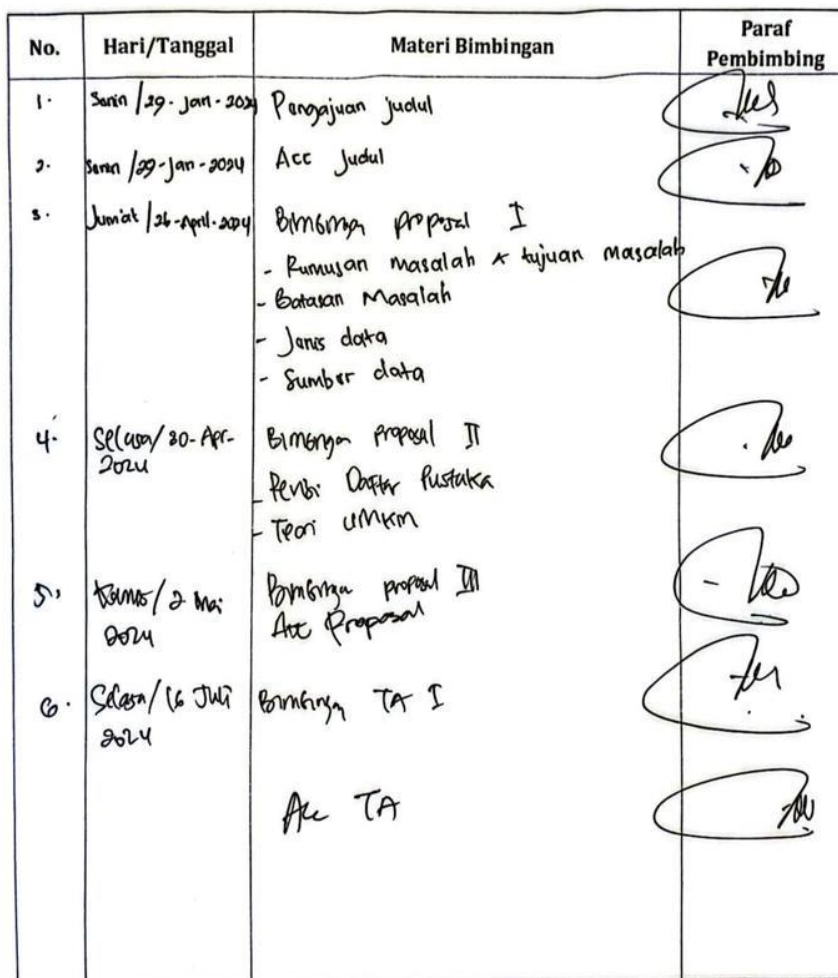 No. Hari/Tanggal Materi Bimbingan Paraf
Pembimbing
1. Senin / 29 - Jan - 2024 Pengajuan judul
2. Senin / 29 - Jan - 2024 Acc Judul
3. Jum'at / 26 - April - 2024 Bimbingan proposal I
- Rumusan masalah & tujuan masalah
- Batasan Masalah
- Jenis data
- Sumber data
4. Selasa / 30 - Apr - Bimbingan proposal II
2024
- Daftar Pustaka
- Teori UMKM
5. Kamis / 2 Mei Bimbingan proposal III
2024 Acc Proposal
6. Selasa / 16 Juli Bimbingan TA I
2024
Acc TA